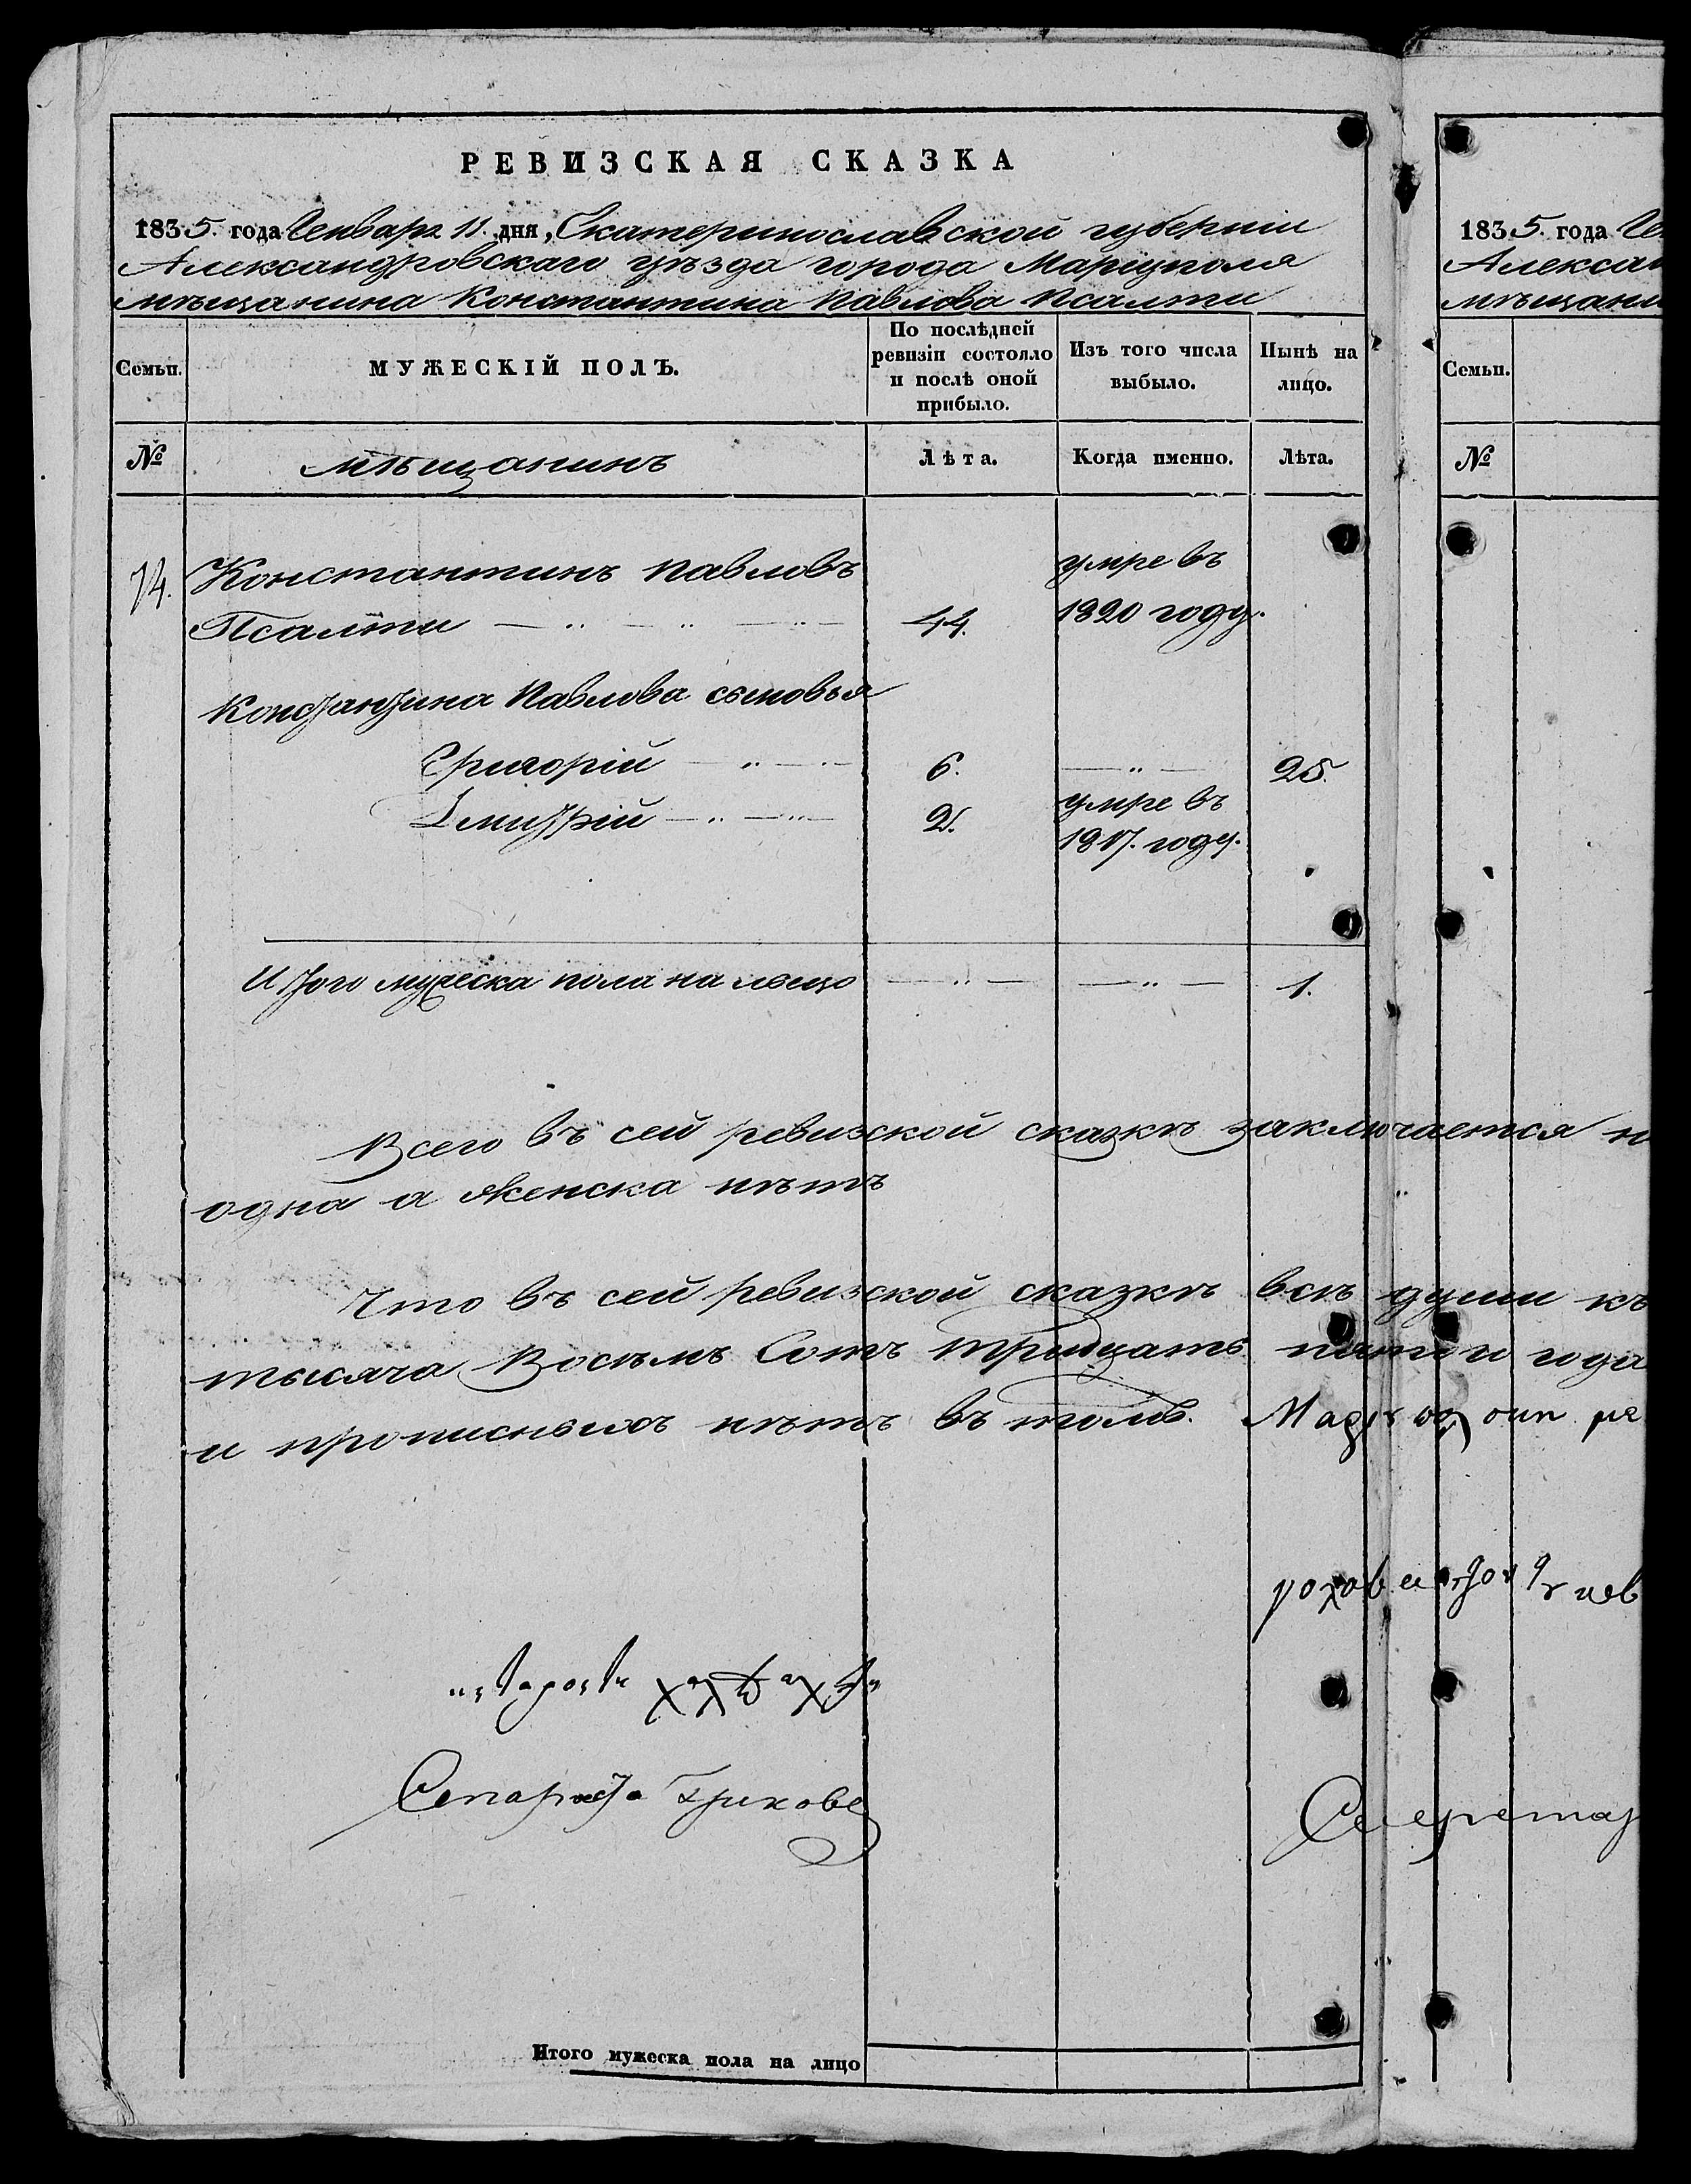 РЕВИЗСКАЯ СКАЗКА
1835. года Генваря 11. дня, Екатеринославской губерніи
Александровскаго уѣзда города Маріуполя
мѣщанина Константина Павлова Псалти
Семьи.
МУЖЕСКІЙ ПОЛЪ.
По послѣдней ревизіи состояло и послѣ оной прибыло.
Изъ того числа выбыло.
Нынѣ на лицо.
№
мѣщанинъ
Лѣта.
Когда именно.
Лѣта.
74. Константинъ Павловъ умре въ
Псалти 44. 1820 году.
Константина Павлова сыновья
Григорій 6. 25.
Дмитрій 2. умре въ
1817. году.
Итого мужеска пола на лицо 1.
Всего въ сей ревизской сказкѣ заключается
одна а женска нѣтъ
Что въ сей ревизской сказкѣ всѣ души къ
тысяча Восѣмъ Сотъ тридцать пятого года
и прописныхъ нѣтъ въ томъ.
Секретар
Итого мужеска пола на лицо
1835. года Ге
Алексан
мѣщани
Семьи.
№